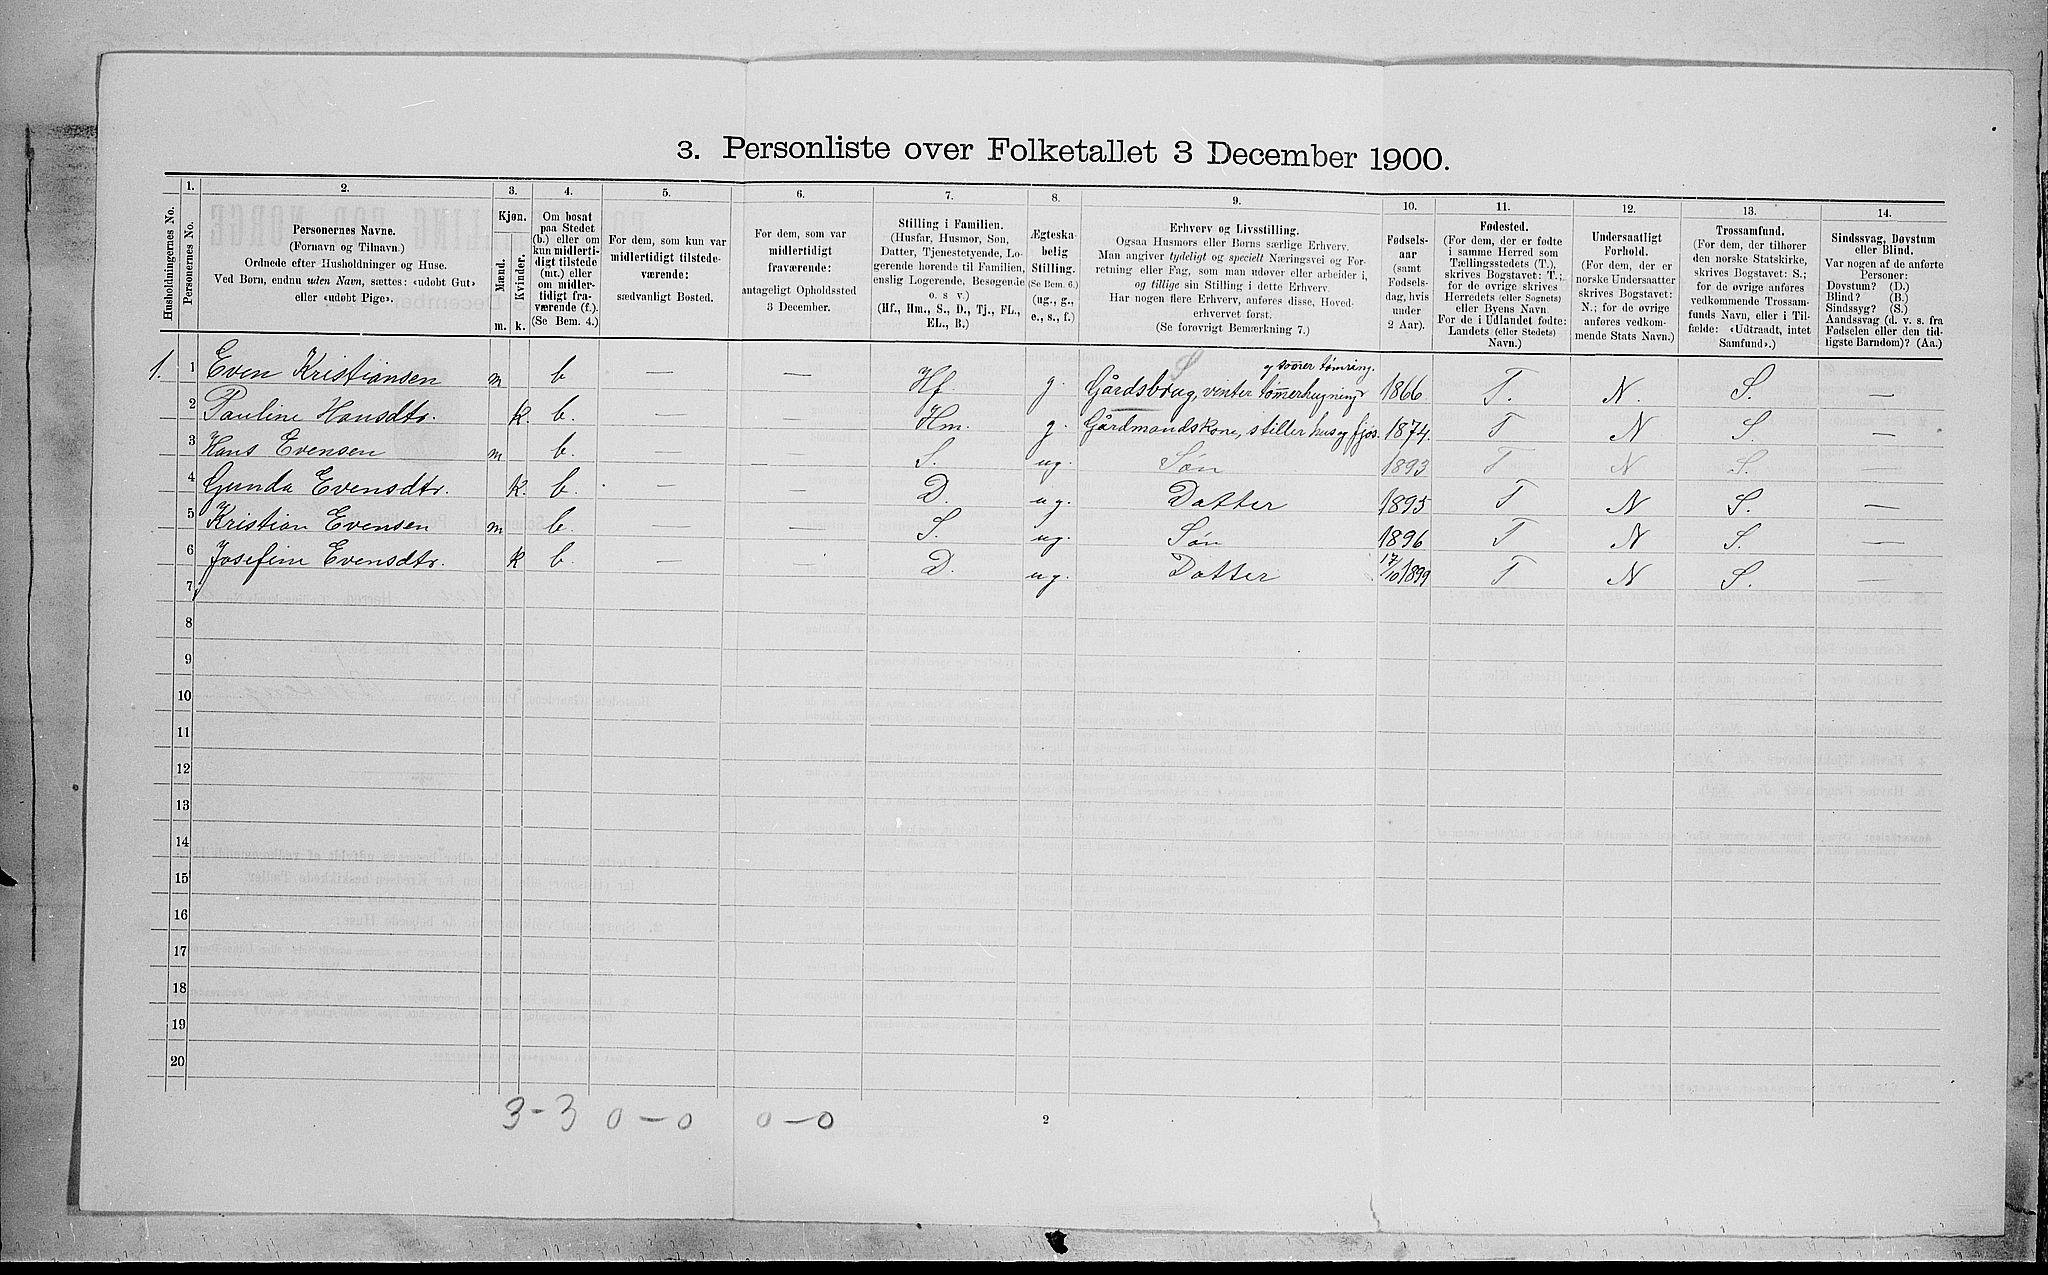 3. Personliste over Folketallet 3 December 1900.
Husholdningernes No.
1.
Personernes No.
2.
Personernes Navne.
(Fornavn og Tilnavn.)
Ordnede efter Husholdninger og Huse.
Ved Børn, endnu uden Navn, sættes: «udøbt Gut»
eller «udøbt Pige».
3.
Kjøn.
Mænd.
Kvinder.
m. k.
4.
Om bosat
paa Stedet
(b.) eller om
kun midlerti-
digt tilstede
(mt.) eller
om midler-
tidigt fra-
værende (f.).
(Se Bem. 4.)
5.
For dem, som kun var
midlertidigt tilstede-
værende:
sædvanligt Bosted.
6.
For dem, som var
midlertidigt
fraværende:
antageligt Opholdssted
3 December.
7.
Stilling i Familien.
(Husfar, Husmor, Søn,
Datter, Tjenestetyende, Lo-
gerende hørende til Familien,
enslig Logerende, Besøgende
o. s v.)
(Hf., Hm., S., D., Tj., FL.,
EL., B.)
8.
Ægteska-
belig
Stilling.
(Se Bem. 6.)
(ug., g.,
e., s., f.)
9.
Erhverv og Livsstilling.
Ogsaa Husmors eller Børns særlige Erhverv.
Man angiver tydeligt og specielt Næringsvei og For-
retning eller Fag, som man udøver eller arbeider i,
og tillige sin Stilling i dette Erhverv.
Har nogen flere Erhverv, anføres disse, Hoved-
erhvervet først.
(Se forøvrigt Bemærkning 7.)
10.
Fødsels-
aar
(samt
Fødsels-
dag, hvis
under
2 Aar).
11.
Fødested.
(For dem, der er fødte
i samme Herred som
Tællingsstedets (T.),
skrives Bogstavet: T.;
for de øvrige skrives
Herredets (eller Sognets)
eller Byens Navn
For de i Udlandet fødte:
Landets (eller Stedets)
Navn.)
12.
Undersaatligt
Forhold.
(For dem, der er
norske Undersaatter
skrives Bogstavet:
N.; for de øvrige
anføres vedkom-
mende Stats Navn.)
13.
Trossamfund.
(For dem, der tilhører
den norske Statskirke,
skrives Bogstavet: S.;
for de øvrige anføres
vedkommende Trossam-
funds Navn, eller i Til-
fælde: «Udtraadt, intet
Samfund».)
14.
Sindssvag, Døvstum
eller Blind.
Var nogen af de anførte
Personer:
Døvstum? (D.)
Blind? (B.)
Sindssyg? (S.)
Aandssvag (d. v. s. fra
Fødselen eller den tid-
ligste Barndom)? (Aa.)
S
1. 1 Even Kristiansen m b — — Hf g. Gårdsbrug, vinter tømerhugning 1866 T. N. S. —
2 Pauline Hansdtr. k. b. — — Hm. g. Gårdmandskone, stiller hus og fjøs. 1874. T N S. —
3 Hans Evensen m b. — — S. ug. Søn 1893 T N S. —
4 Gunda Evensdtr. k. b. — — D. ug. Datter 1895 T N S. —
5 Kristian Evensen m b. — — S. ug. Søn 1896 T N S. —
6 Josefine Evensdtr. k b. — — D. ug. Datter 17/10 1899 T N S. —
7
8
9
10
11
12
13
14
15
16
17
18
19
20
3 - 3 0 — 0 0 — 0
2